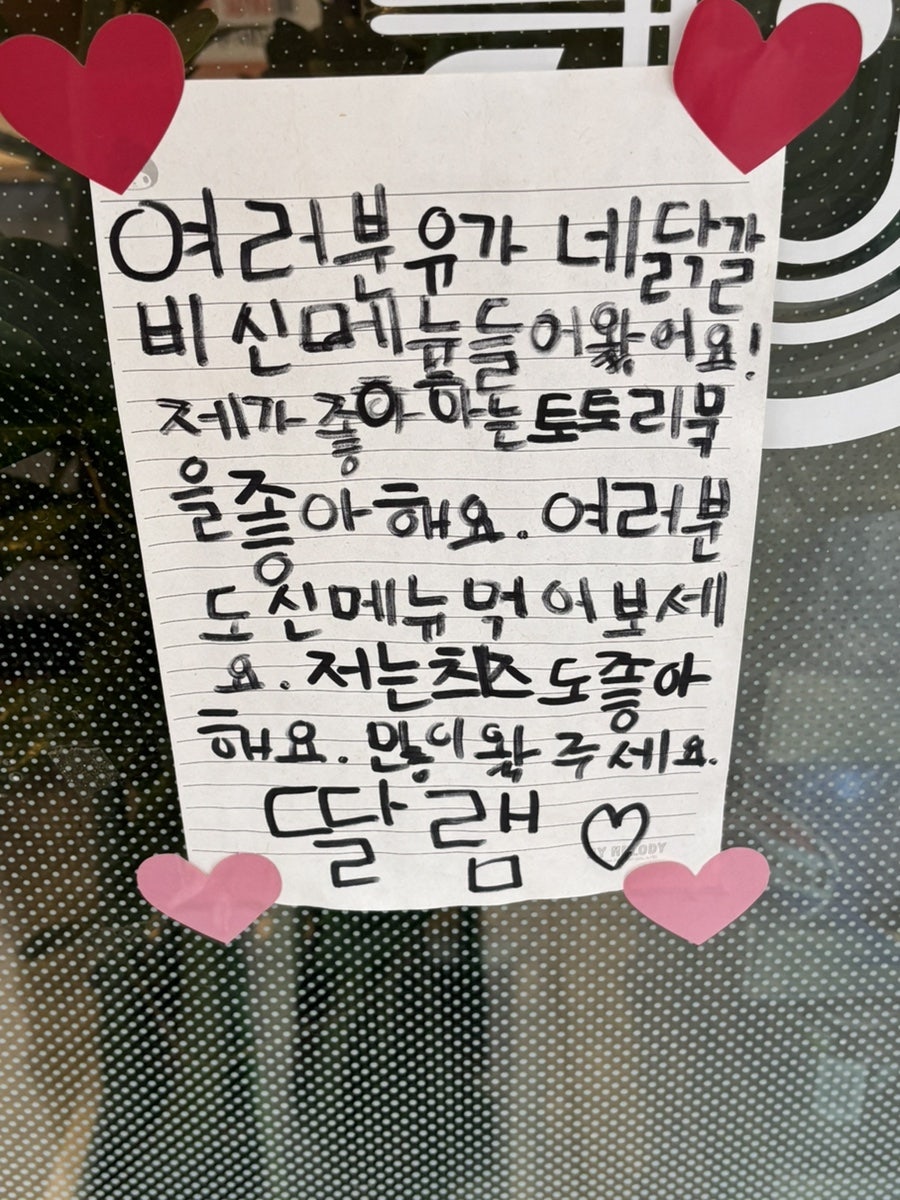 여러분 유가 네 닭갈
비 신메뉴들어왔어요!
제가 좋아하는 토토리묵
을 좋아해요. 여러분
도 신메뉴 먹어보세
요. 저는 치즈도 좋아
해요. 많이 왔 주세요.
딸램 ♡
MY MELODY